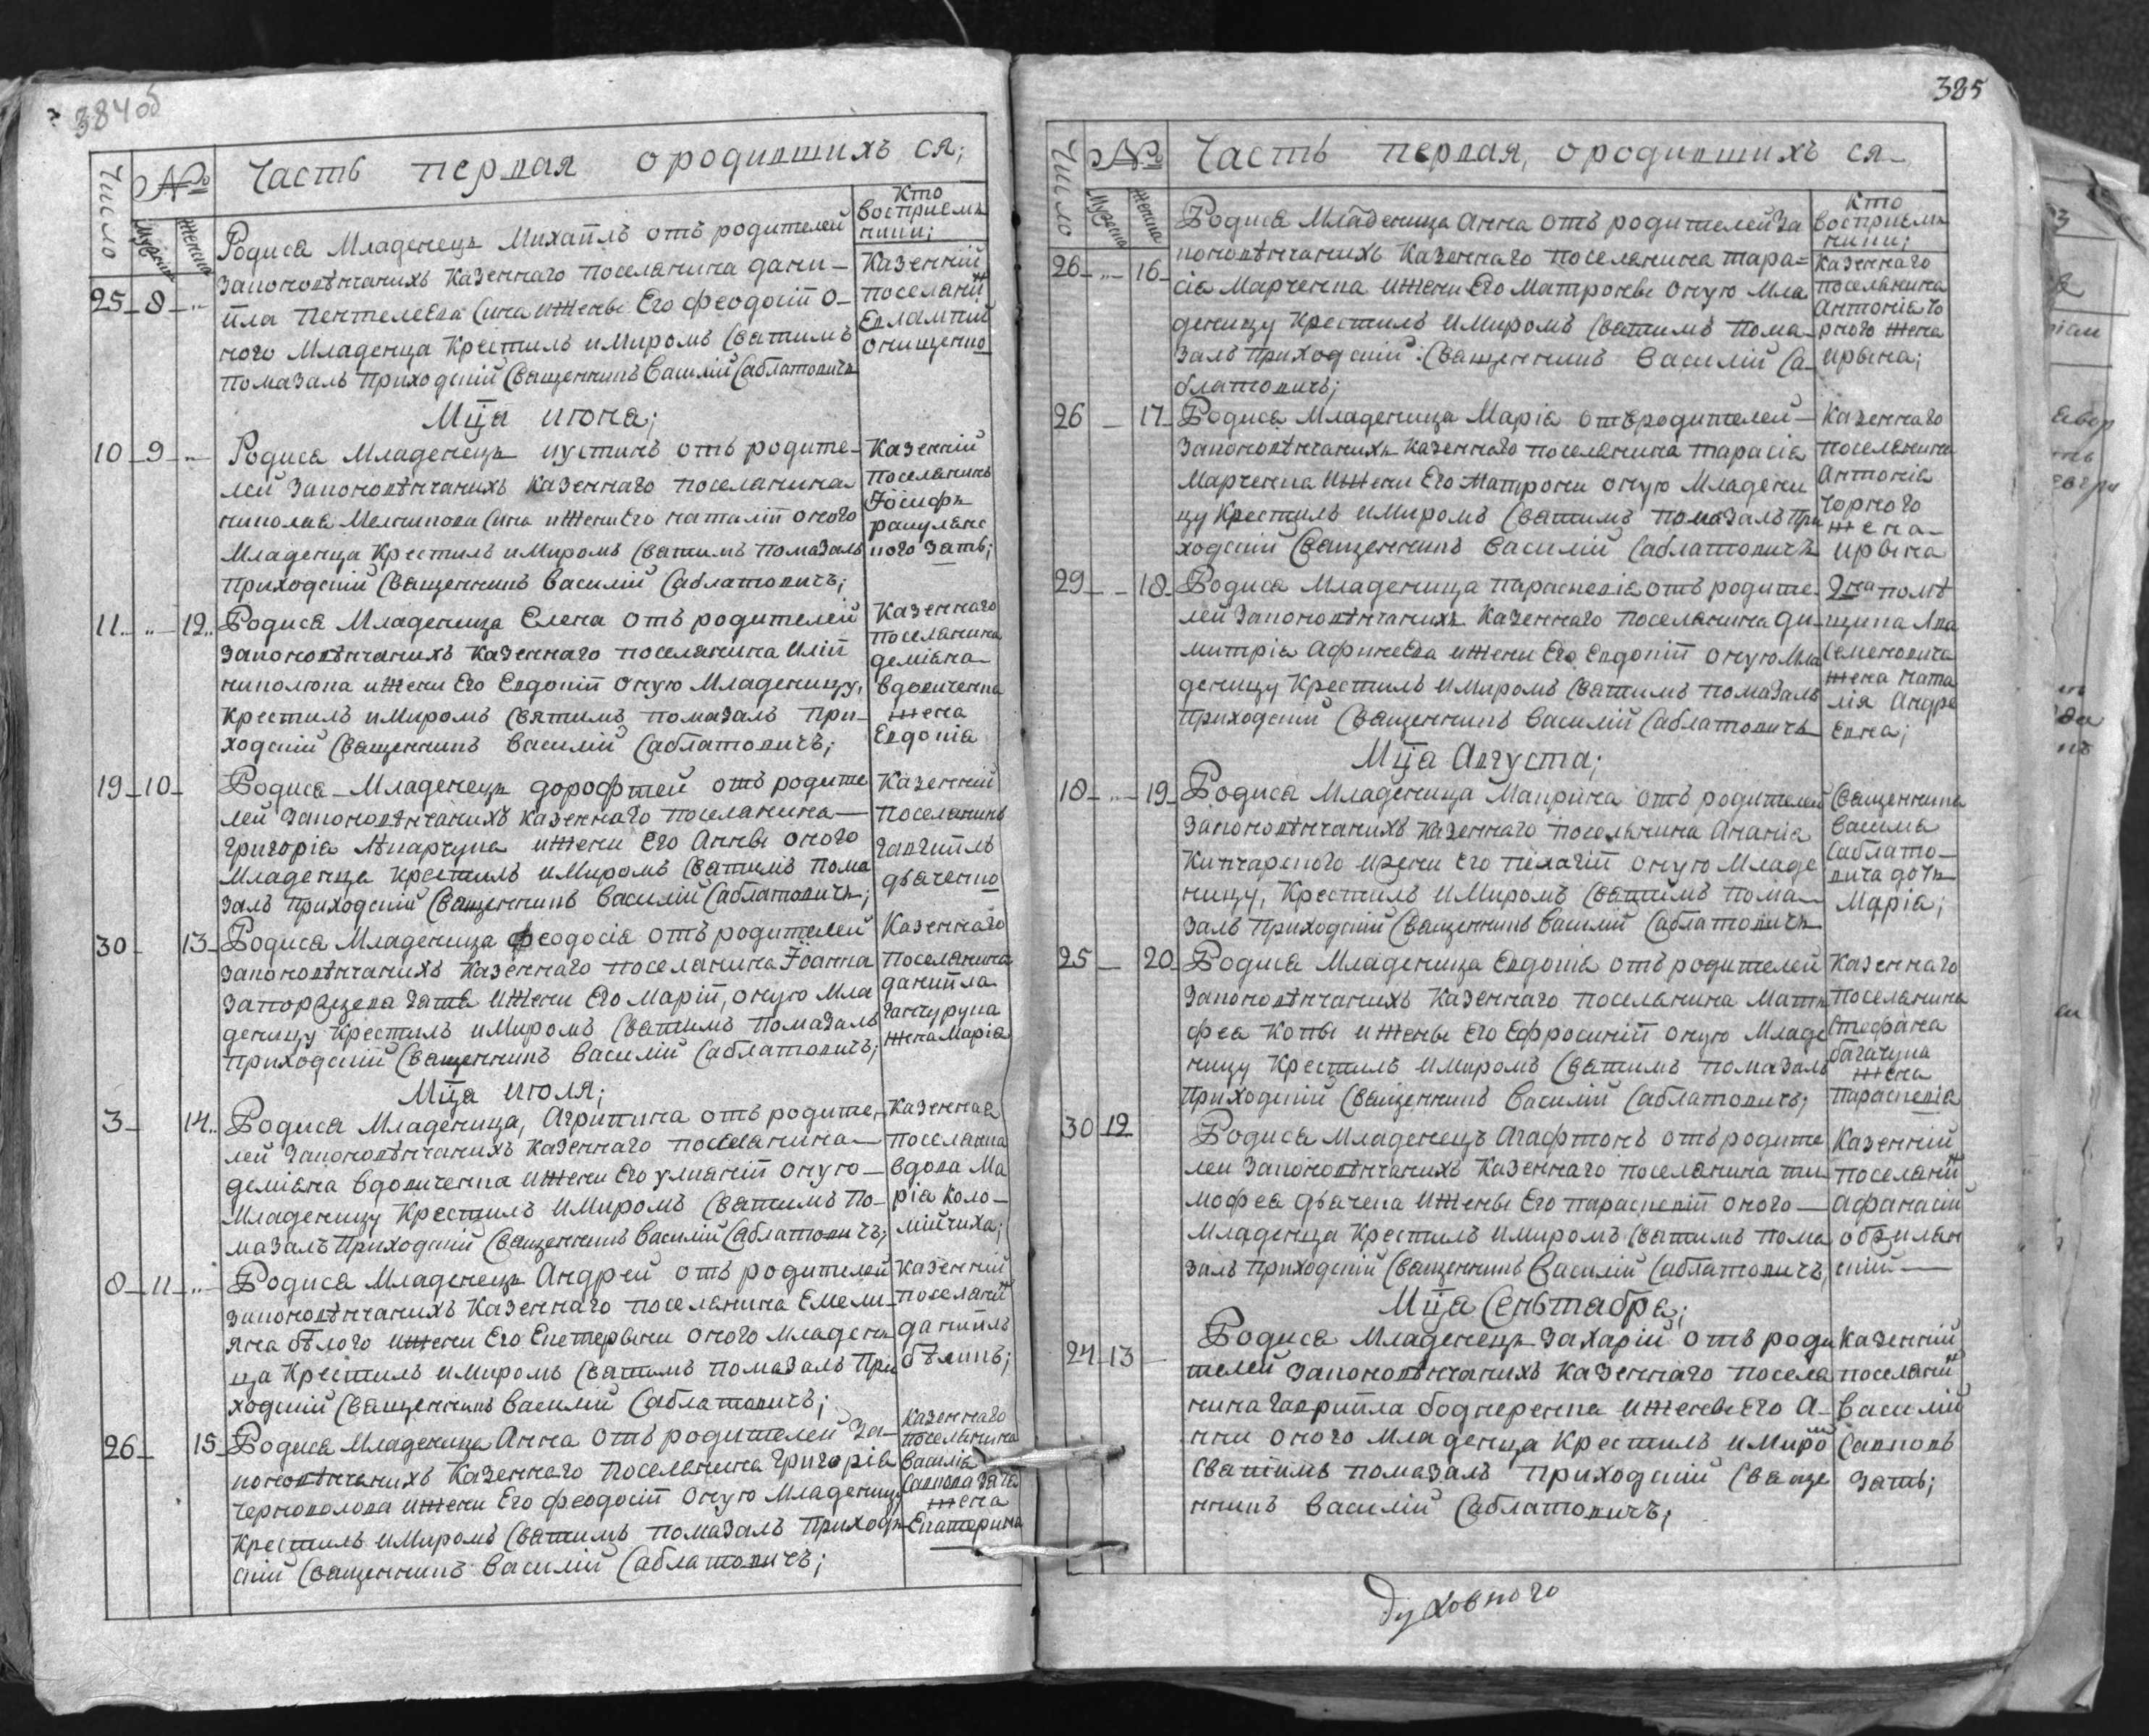 384об
Число
№
Часть первая ородившихъ ся;
Мужска
Женска
Кто
восприемъ
ники;
Родися Младенецъ Михаилъ отъ родителей
25 8 „
законовѣнчанихъ Казеннаго поселянина дани-
ила Пентелеева сина иЖены Его феодосіи о-
ного Младенца Крестилъ иМиромъ святимъ
помазалъ приходскій священникъ василій саблатовичъ
Казенній
поселянин
Евлампій
онищенко
Мца июня;
10 9 „
Родися Младенецъ иустинъ отъ родите-
лей Законовѣнчанихъ Казеннаго поселянина
николая Мелникова сина иЖени Его наталіи оного
Младенца Крестилъ иМиромъ святимъ помазалъ
приходскій священникъ василій саблатовичъ;
Казенній
поселянинъ
Іосифъ
ракулянс
кого зять;
11 „ 12
Родися Младеница Елена отъ родителей
законовѣнчанихъ казеннаго поселянина иліи
николюка иЖени Его Евдокіи оную Младеницу,
Крестилъ иМиромъ святимъ помазалъ при-
ходскій священникъ василій саблатовичъ;
Казеннаго
поселянина
деміяна
вдовиченка
жена
Евдокія
19 10
Родися Младенецъ дорофтей отъ родите
лей Законовѣнчанихъ казеннаго поселянина
григорія Лѣпарчука иЖени Его Анны оного
Младенца крестилъ иМиромъ святимъ пома
залъ приходскій священникъ василій саблатовичъ;
Казенній
поселянинъ
гавриілъ
дяченко
30 13
Родися Младеница феодосія отъ родителей
законовѣнчанихъ казеннаго поселянина Іоанна
Запорощева зятя иЖени Его Маріи, оную Мла
деницу крестилъ иМиромъ святимъ помазалъ
приходскій священникъ василій саблатовичъ;
Казеннаго
поселянина
даниила
ганчурука
жена Марія
Мца июля;
3 14
Родися Младеница, Агрипина отъ родите-
лей Законовѣнчанихъ казеннаго поселянина
деміяна вдовиченка иЖени Его улияніи оную
Младеницу Крестилъ иМиромъ святимъ по-
мазалъ приходскій священникъ василій саблатовичъ;
Казенная
поселянка
вдова Ма
рія коло-
мійчиха;
8 11 „
Родися Младенецъ Андрей отъ родителей
законовѣнчанихъ казеннаго поселянина Емели
яна бѣлого иЖени Его Екатерыни оного младен
ца Крестилъ иМиромъ святимъ помазалъ при
ходскій священникъ василій саблатовичъ;
Казенній
поселянин
даниилъ
бѣликъ;
26 15
Родися Младеница Анна отъ родителей За-
коновѣнчанихъ казеннаго поселянина григорія
черноволова иЖени Его феодосіи оную Младеницу
Крестилъ иМиромъ святимъ помазалъ приход
скій священникъ василій саблатовичъ;
Казеннаго
поселянина
василія
савкова зятя
жена
Екатерина
385
Число
№
Часть первая, ородившихъ ся
Мужска
Женска
Кто
восприемъ
ники;
Родися Младеница Анна отъ родителей За
26 „ 16
коновѣнчанихъ Казеннаго поселянина тара=
сія Марченка иЖени Его Матроны оную Мла
деницу Крестилъ иМиромъ святимъ пома-
залъ приходскій священникъ василій са-
блатовичъ;
Казеннаго
поселянина
Антонія чо
рного жена
ирына;
26 17
Родися Младеница Марія отъ родителей
Законовѣнчанихъ казеннаго поселянина тарасія
Марченка иЖени Его Матрони оную Младени
цу Крестилъ иМиромъ святимъ помазалъ при
ходскій священникъ василій саблатовичъ
Казеннаго
поселянина
Антонія
чорного
жена
ирына
29 18
Родися Младеница параскевія отъ родите
лей Законовѣнчанихъ казеннаго поселянина ди-
митрія Афинеева иЖени Его Евдокіи оную Мла
деницу Крестилъ иМиромъ святимъ помазалъ
приходскій священникъ василій саблатовичъ
помѣ
щика
Семеновича
жена ната
лія Андре
евна;
Мца Августа;
18 „ 19
Родися Младеница Макрина отъ родителей
законовѣнчанихъ казеннаго поселянина Ананія
Кичкарского ижени Его пелагіи оную Младе
ницу, Крестилъ иМиромъ святимъ пома
залъ приходскій священникъ василій саблатовичъ
священника
василія
саблато-
вича дочь
Марія;
25 20
Родися Младеница Евдокія отъ родителей
законовѣнчанихъ казеннаго поселянина Матъ
фея Копы иЖены Его Ефросиніи оную Младе
ницу Крестилъ иМиромъ святимъ помазалъ
приходскій священникъ василій саблатовичъ;
Казеннаго
поселянина
стефана
багачука
жена
параскевія
30 12
Родися Младенецъ Агафтонъ отъ родите
лей Законовѣнчанихъ казеннаго поселянина ти
мофея дячека иЖены Его параскевіи оного
Младенца Крестилъ иМиромъ святимъ пома
залъ приходскій священникъ василій саблатовичъ,
Казенній
поселянин
Афанасій
обжилян
скій
Мца сеньтабра;
24 13
Родися Младенецъ Захарій отъ роди
телей законовѣнчанихъ казеннаго посела
нина гавриила боднеренка иЖены Его А-
нни оного Младенца Крестилъ иМиром
святимъ помазалъ приходскій свяще
нникъ василій саблатовичъ;
Казенній
поселянин
василій
савковъ
зять;
духовного